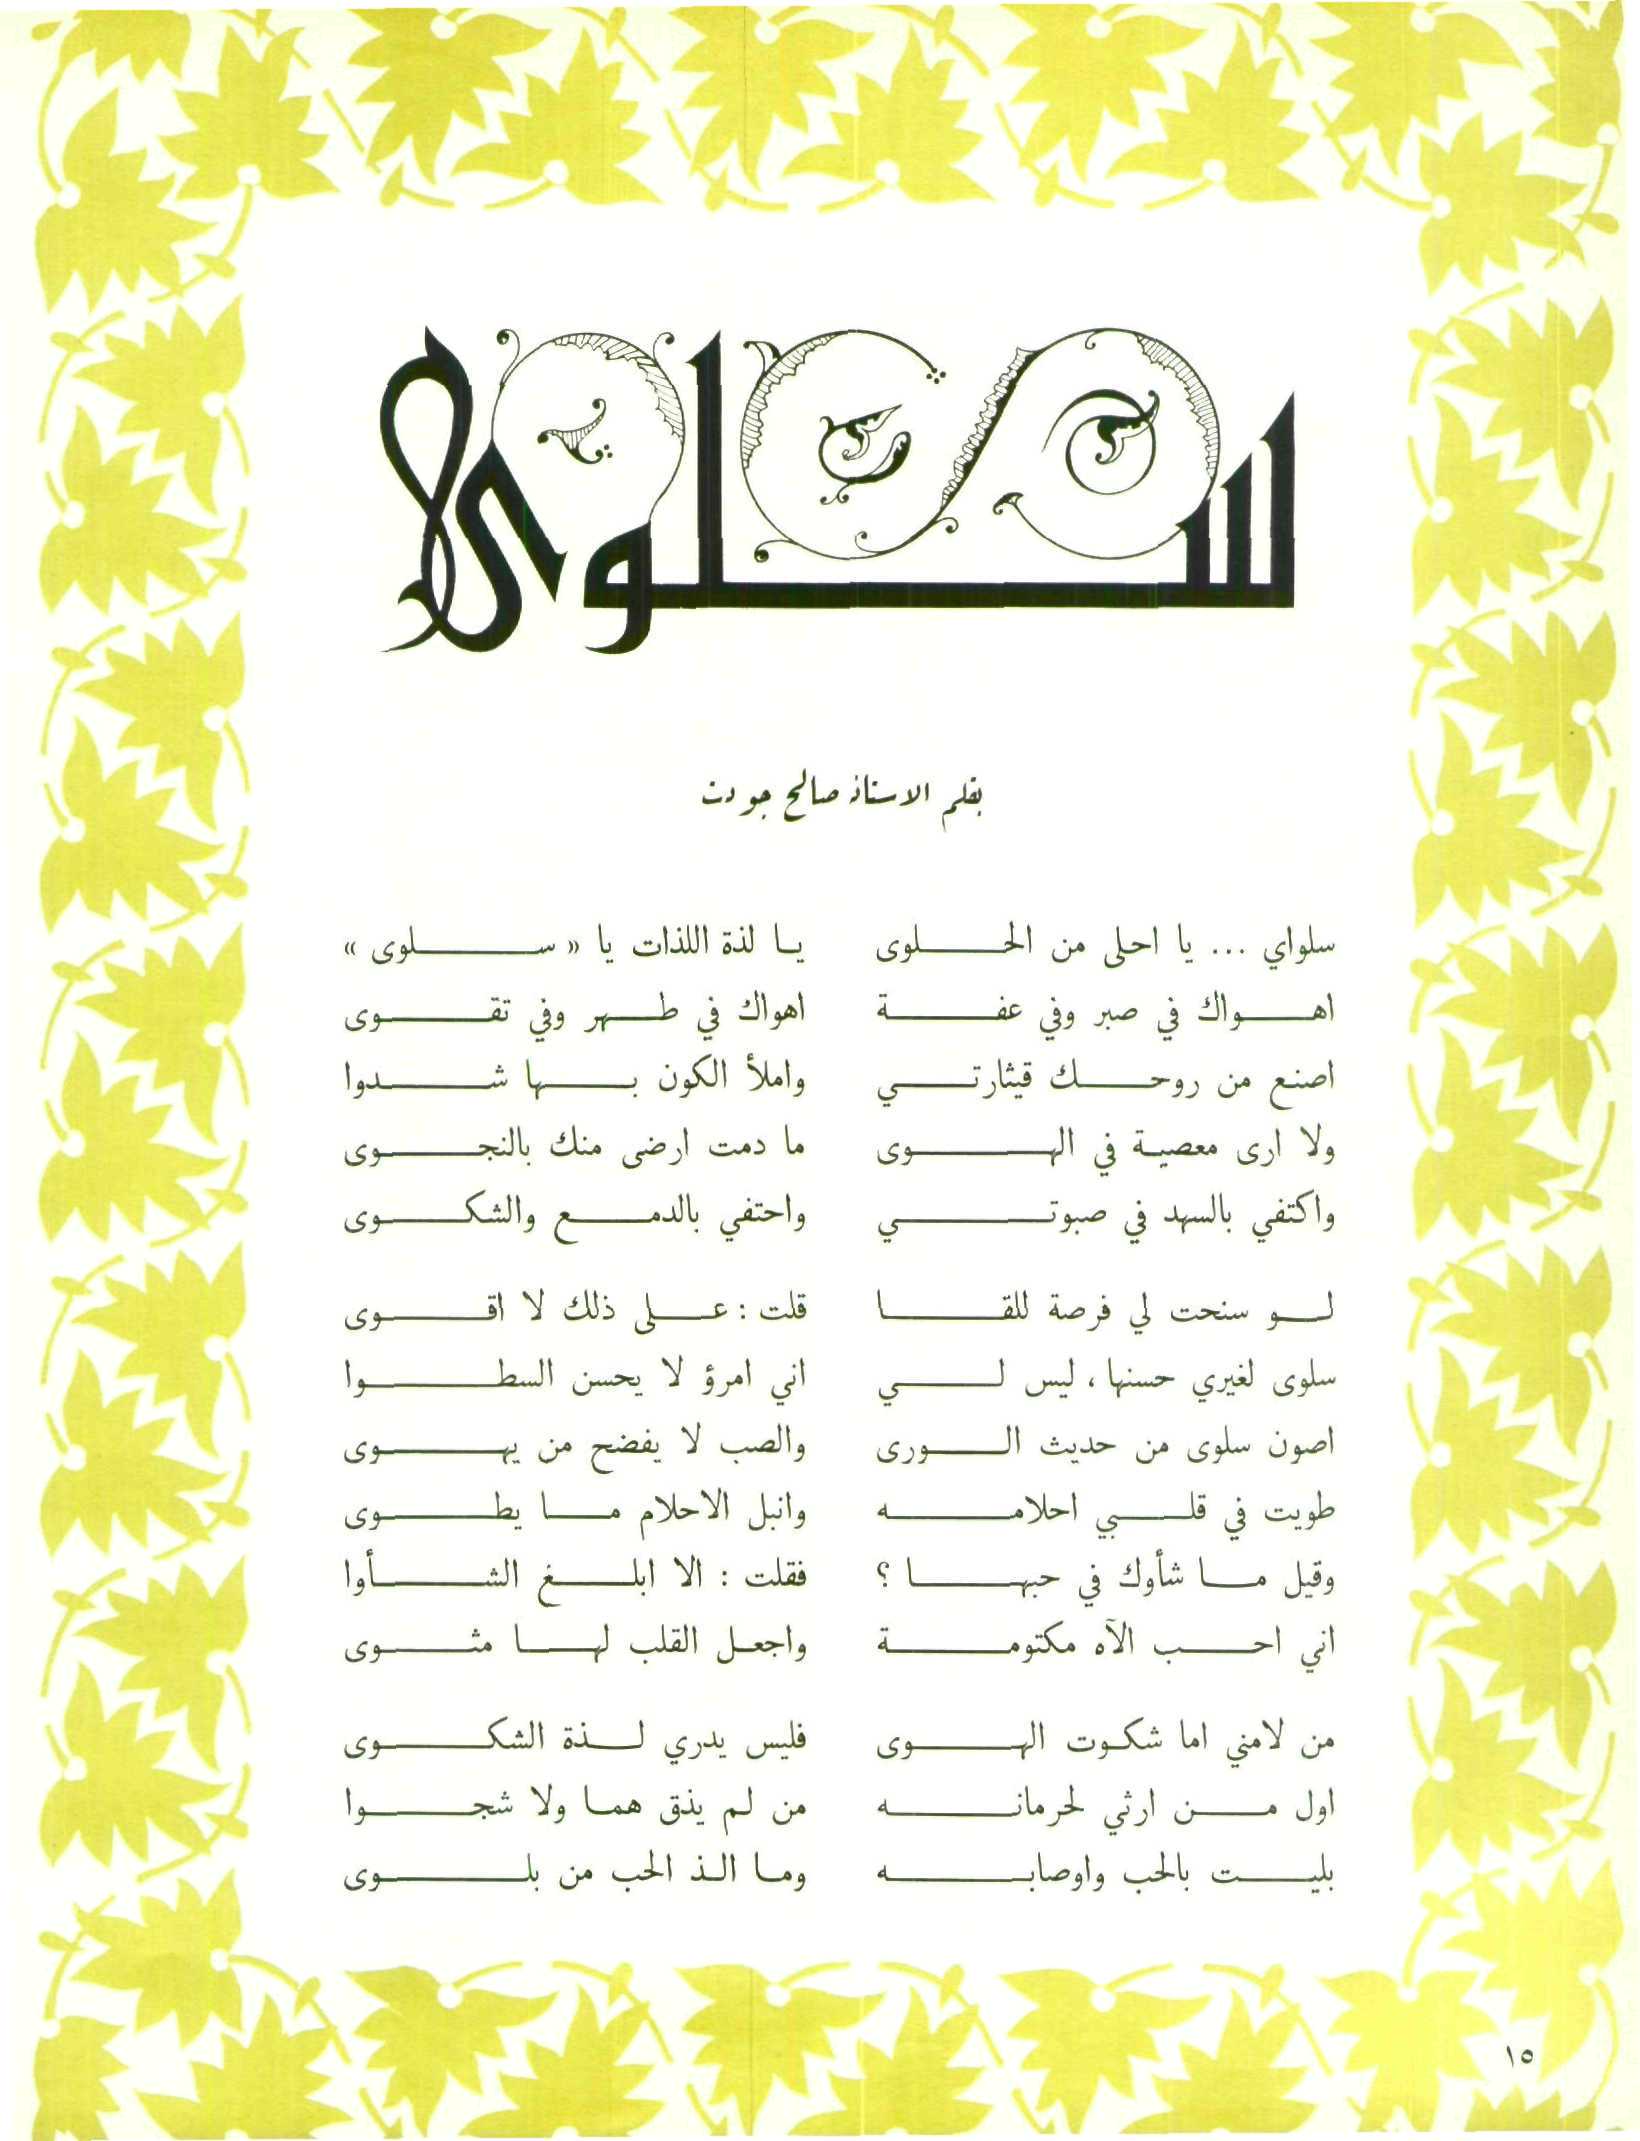 سلوى
بقلم الاستاذ صالح جودت
سلواي ... يا احلى من الحلوى يا لذة اللذات يا « سلوى »
اهواك في صبر وفي عفة اهواك في طهر وفي تقوى
اصنع من روحك قيثارتي واملأ الكون بها شدوا
ولا ارى معصية في الهوى ما دمت ارضى منك بالنجوى
واكتفي بالسهد في صبوتي واحتفي بالدمع والشكوى
لو سنحت لي فرصة للقا قلت : على ذلك لا اقوى
سلوى لغيري حسنها ، ليس لي اني امرؤ لا يحسن السطوا
اصون سلوى من حديث الورى والصب لا يفضح من يهوى
طويت في قلبي احلامه وانبل الاحلام ما يطوى
وقيل ما شأوك في حبها ؟ فقلت : الا ابلغ الشأوا
اني احب الآه مكتومة واجعل القلب لها مثوى
من لامني اما شكوت الهوى فليس يدري لذة الشكوى
اول من ارثي لحرمانه من لم يذق هما ولا شجوا
بليت بالحب واوصابه وما الذ الحب من بلوى
١٥